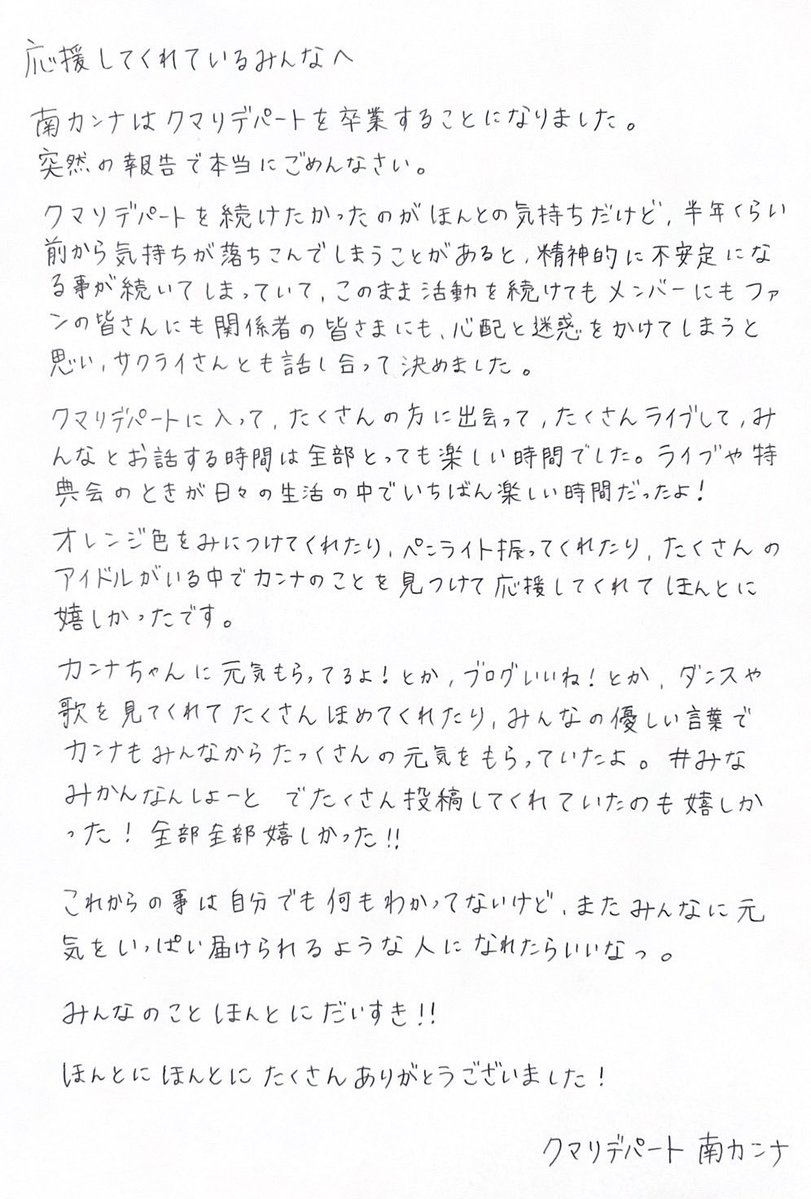 応援してくれているみんなへ
南カンナはクマリデパートを卒業することになりました。
突然の報告で本当にごめんなさい。
クマリデパートを続けたかったのがほんとの気持ちだけど、半年くらい
前から気持ちが落ちこんでしまうことがあると、精神的に不安定にな
る事が続いてしまっていて、このまま活動を続けてもメンバーにもファ
ンの皆さんにも関係者の皆さまにも、心配と迷惑をかけてしまうと
思い、サクライさんとも話し合って決めました。
クマリデパートに入って、たくさんの方に出会って、たくさんライブして、み
んなとお話する時間は全部とっても楽しい時間でした。ライブや特
典会のときが日々の生活の中でいちばん楽しい時間だったよ！
オレンジ色をみにつけてくれたり、ペンライト振ってくれたり、たくさんの
アイドルがいる中でカンナのことを見つけて応援してくれてほんとに
嬉しかったです。
カンナちゃんに元気もらってるよ！とか、ブログいいね！とか、ダンスや
歌を見てくれてたくさんほめてくれたり、みんなの優しい言葉で
カンナもみんなからたっくさんの元気をもらっていたよ。#みな
みかんなんしょーと でたくさん投稿してくれていたのも嬉しか
った！全部全部嬉しかった!!
これからの事は自分でも何もわかってないけど、またみんなに元
気をいっぱい届けられるような人になれたらいいなっ。
みんなのことほんとにだいすき!!
ほんとにほんとにたくさんありがとうございました！
クマリデパート 南カンナ